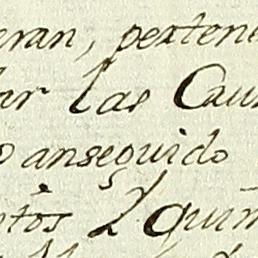 eran, pertene
ar las Cau
o anseguido
ntos 2 quin